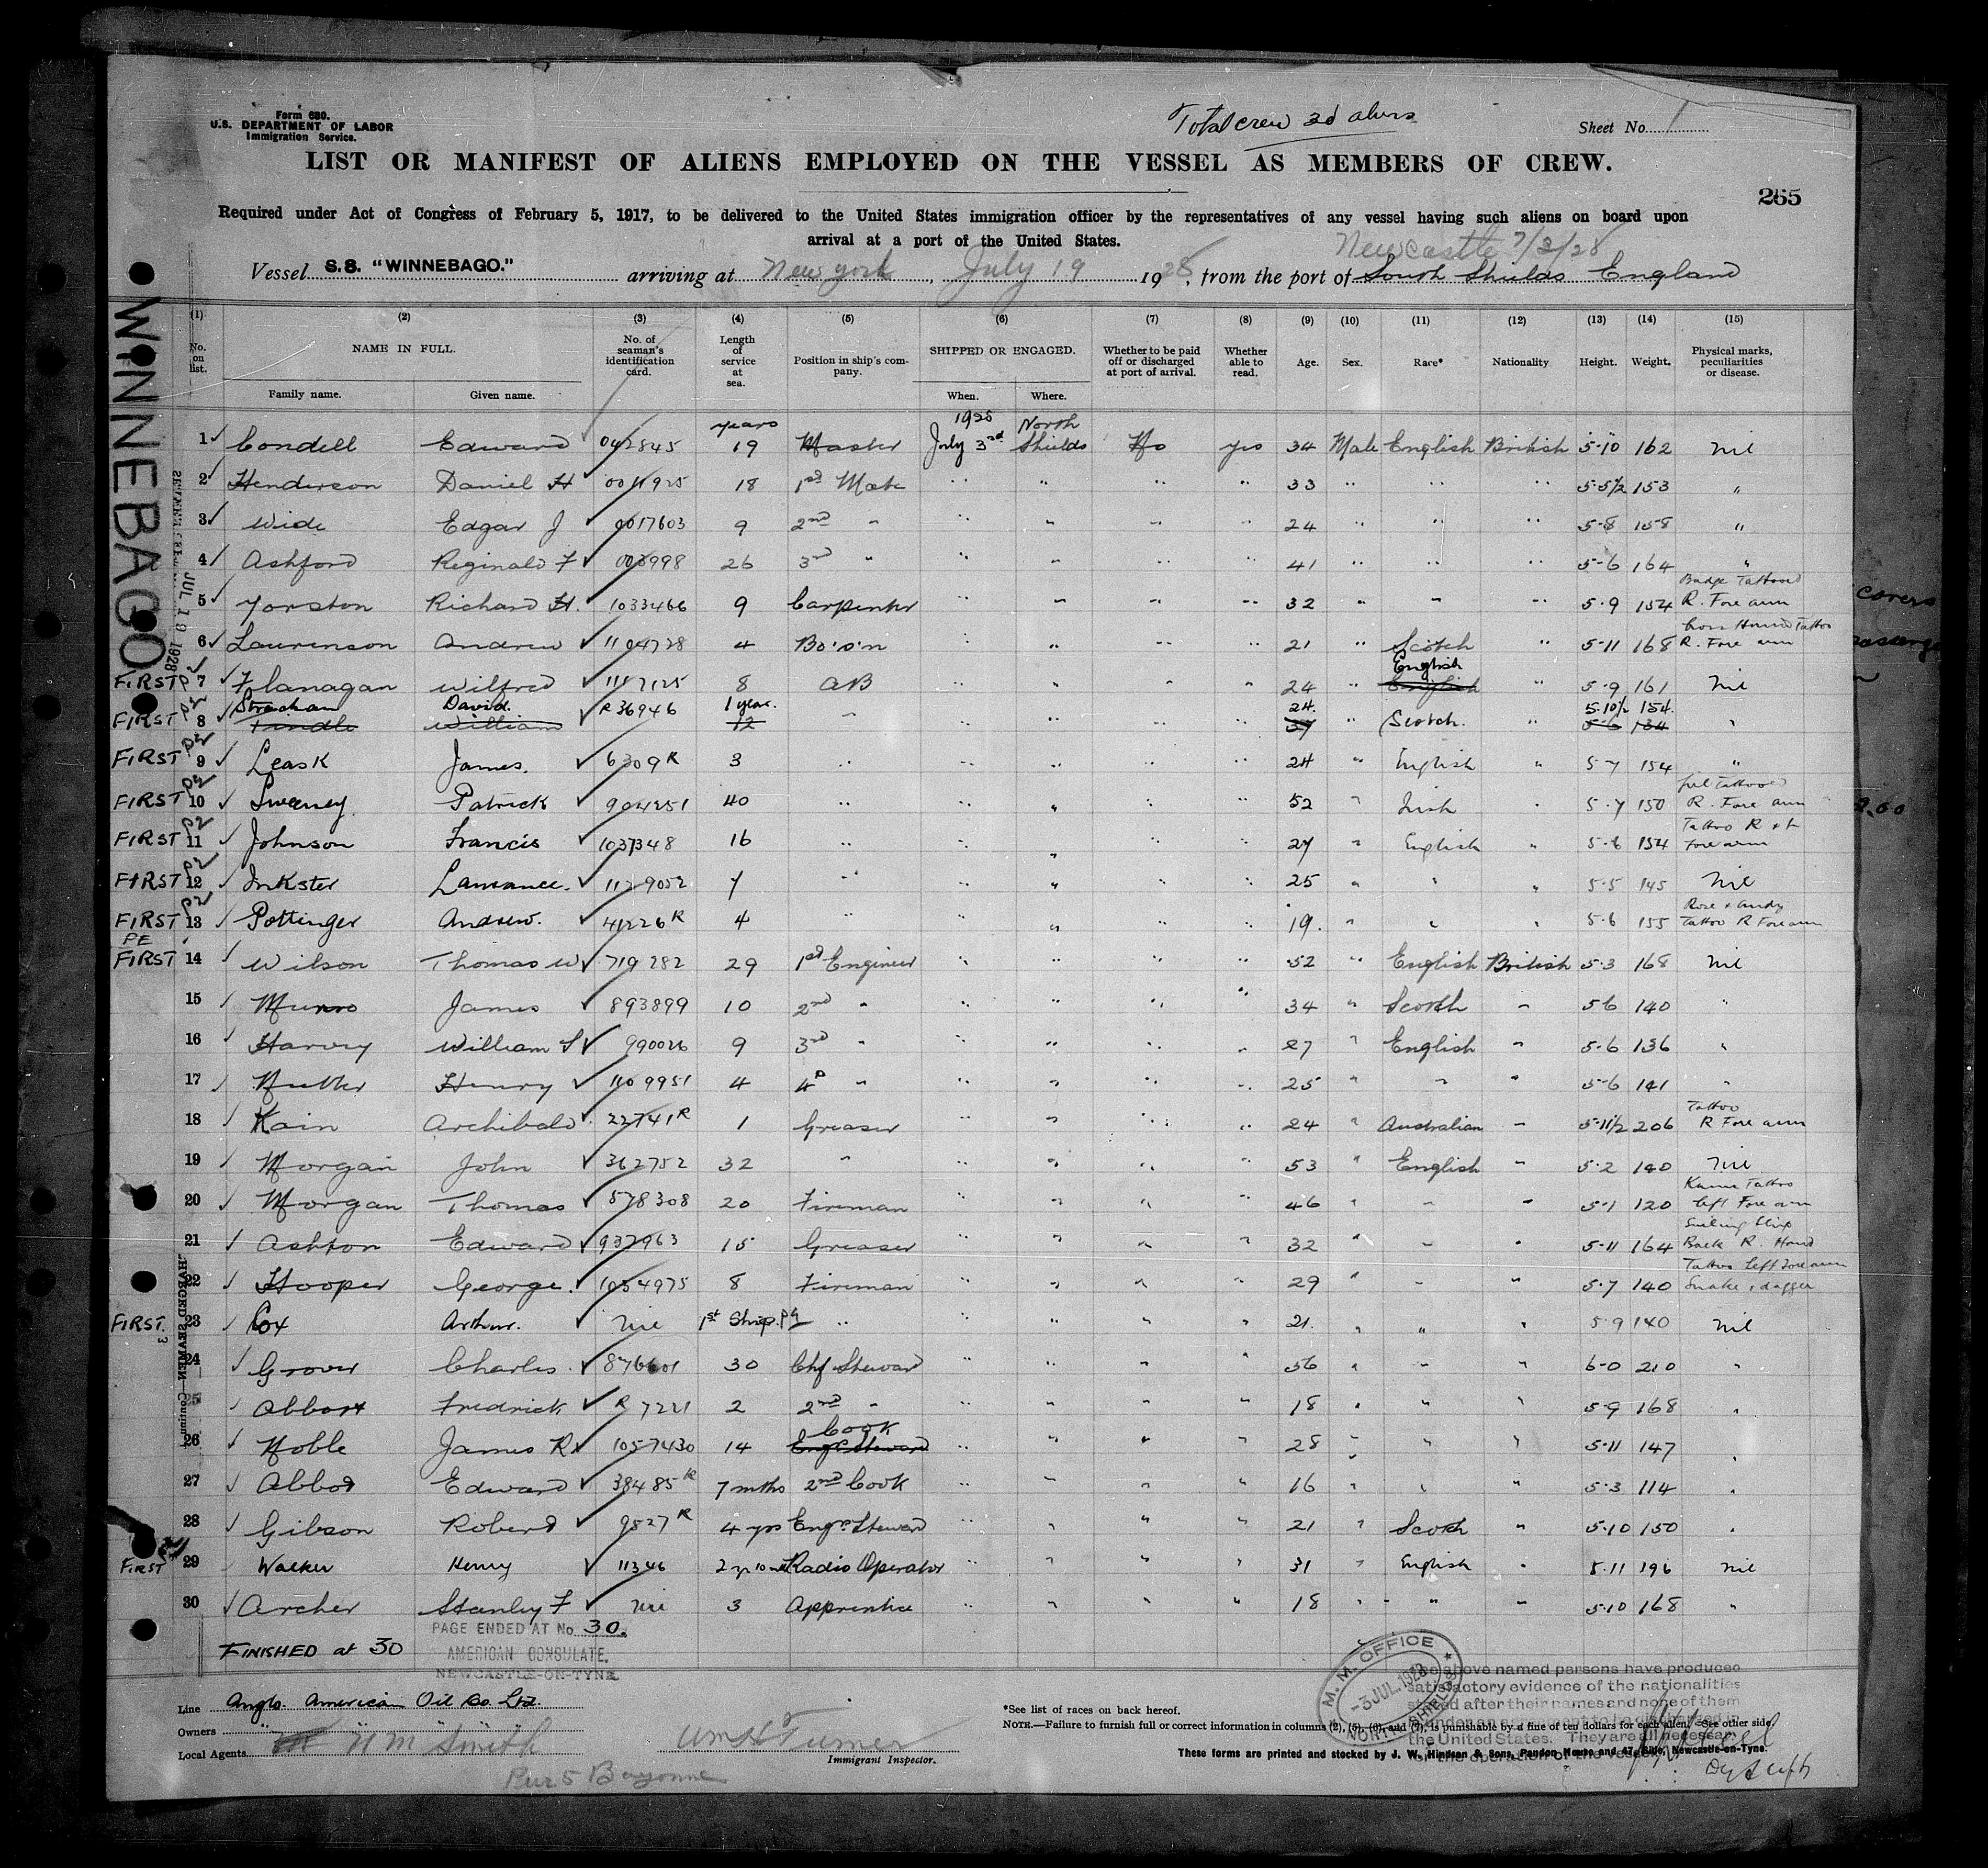 Form 680.
U.S. DEPARTMENT OF LABOR
Immigration Service.
Total crew 30 aliens
Sheet No. 1
LIST OR MANIFEST OF ALIENS EMPLOYED ON THE VESSEL AS MEMBERS OF CREW.
265
Required under Act of Congress of February 5, 1917, to be delivered to the United States immigration officer by the representatives of any vessel having such aliens on board upon
arrival at a port of the United States.
Newcastle 7/3/28
Vessel S.S. "WINNEBAGO." arriving at New York, July 19 1928, from the port of South Shields England
WINNEBAGO
JUL 19 1928
(1) (2) (3) (4) (5) (6) (7) (8) (9) (10) (11) (12) (13) (14) (15)
No. on list. NAME IN FULL. Family name. Given name. No. of seaman's identification card. Length of service at sea. Position in ship's company. SHIPPED OR ENGAGED. When. Where. Whether to be paid off or discharged at port of arrival. Whether able to read. Age. Sex. Race* Nationality Height. Weight. Physical marks, peculiarities or disease.
years 1928 North
1 Condell Edward 042845 19 Master July 3rd Shields No yes 34 Male English British 5-10 162 Nil
2 Henderson Daniel H 0011925 18 1st Mate " " " " 33 " " " 5-5½ 153 "
3 Wide Edgar J 0017603 9 2nd " " " " " 24 " " " 5-8 158 "
4 Ashford Reginald F 003998 26 3rd " " " " " 41 " " " 5-6 164 "
5 Yorston Richard H. 1033466 9 Carpenter " " " " 32 " " " 5-9 154 Badge Tattooed R. Fore arm
6 Laurenson Andrew 1104728 4 Bo's'n " " " " 21 " Scotch " 5-11 168 Tattoo R. Fore arm
FIRST 7 Flanagan Wilfred 1117125 8 AB " " " " 24 " English English " 5-9 161 Nil
FIRST 8 Strachan Tindle David. William R 36946 1 year. 12 " " " " " 24. 37 " Scotch. " 5.10½ 5-6 154. 134 "
FIRST 9 Leask James. 6309 R 3 " " " " " 24 " English " 5-7 154 "
FIRST 10 Sweeney Patrick 904251 40 " " " " " 52 " Irish " 5-7 150 Tattooed R. Fore arm
FIRST 11 Johnson Francis 1037348 16 " " " " " 27 " English " 5-6 154 Tattoo R & L Fore arm
FIRST 12 Inkster Lawrance. 1129052 7 " " " " " 25 " " " 5-5 145 Nil
FIRST 13 Pottinger Andrew. 41226 R 4 " " " " " 19. " " " 5-6 155 Tattoo R Fore arm
FIRST 14 Wilson Thomas W 719282 29 1st Engineer " " " " 52 " English British 5-3 168 Nil
15 Munro James 893899 10 2nd " " " " " 34 " Scotch " 5 6 140 "
16 Harvey William S 990026 9 3rd " " " " " 27 " English " 5-6 136 "
17 Nutter Henry 1109951 4 4th " " " " " 25 " " " 5-6 141 "
18 Kain Archibald 22741 R 1 Greaser " " " " 24 " Australian " 5-11½ 206 Tattoo R Fore arm
19 Morgan John 362752 32 " " " " " 53 " English " 5-2 140 Nil
20 Morgan Thomas 578308 20 Fireman " " " " 46 " " " 5-1 120 Tattoo left Fore arm
21 Ashton Edward 937963 15 Greaser " " " " 32 " " " 5-11 164 Sailing Ship Back R. Hand
22 Hooper George. 1034975 8 Fireman " " " " 29 " " " 5-7 140 Tattoo left Fore arm Snake, dagger
FIRST. 23 Cox Arthur. Nil 1st Ship. " " " " " 21. " " " 5-9 140 Nil
24 Grover Charles. 876601 30 Chf Steward " " " " 56 " " " 6-0 210 "
25 Abbott Fredrick R 7221 2 2nd " " " " " 18 " " " 5-9 168 "
26 Noble James R 1057430 14 Cook Engrs Steward " " " " 28 " " " 5-11 147 "
27 Abbot Edward 38485 R 7 mths 2nd Cook " " " " 16 " " " 5-3 114 "
28 Gibson Robert 9527 R 4 yrs Engrs Steward " " " " 21 " Scotch " 5-10 150 "
FIRST 29 Walker Henry 11346 2 yr 10 mth Radio Operator " " " " 31 " English " 5-11 196 nil
30 Archer Stanley F Nil 3 Apprentice " " " " 18 " " " 5-10 168 "
PAGE ENDED AT No. 30.
FINISHED at 30
AMERICAN CONSULATE.
NEWCASTLE-ON-TYNE
M. M. OFFICE
-3 JUL. 1928
NORTH SHIELDS
The above named persons have produced
satisfactory evidence of the nationalities
stated after their names and none of them
the United States. They are all necessary
for the operation of the vessel
Line Anglo. American Oil Co. Ltd.
Owners "
Local Agents H M Smith
Pier 5 Bayonne
Wm H Turner
Immigrant Inspector.
*See list of races on back hereof.
NOTE.—Failure to furnish full or correct information in columns (2), (5), (6), and (7), is punishable by a fine of ten dollars for each alien. See other side.
These forms are printed and stocked by J. W. Hindson & Sons, Pandon House and 47, Side, Newcastle-on-Tyne.